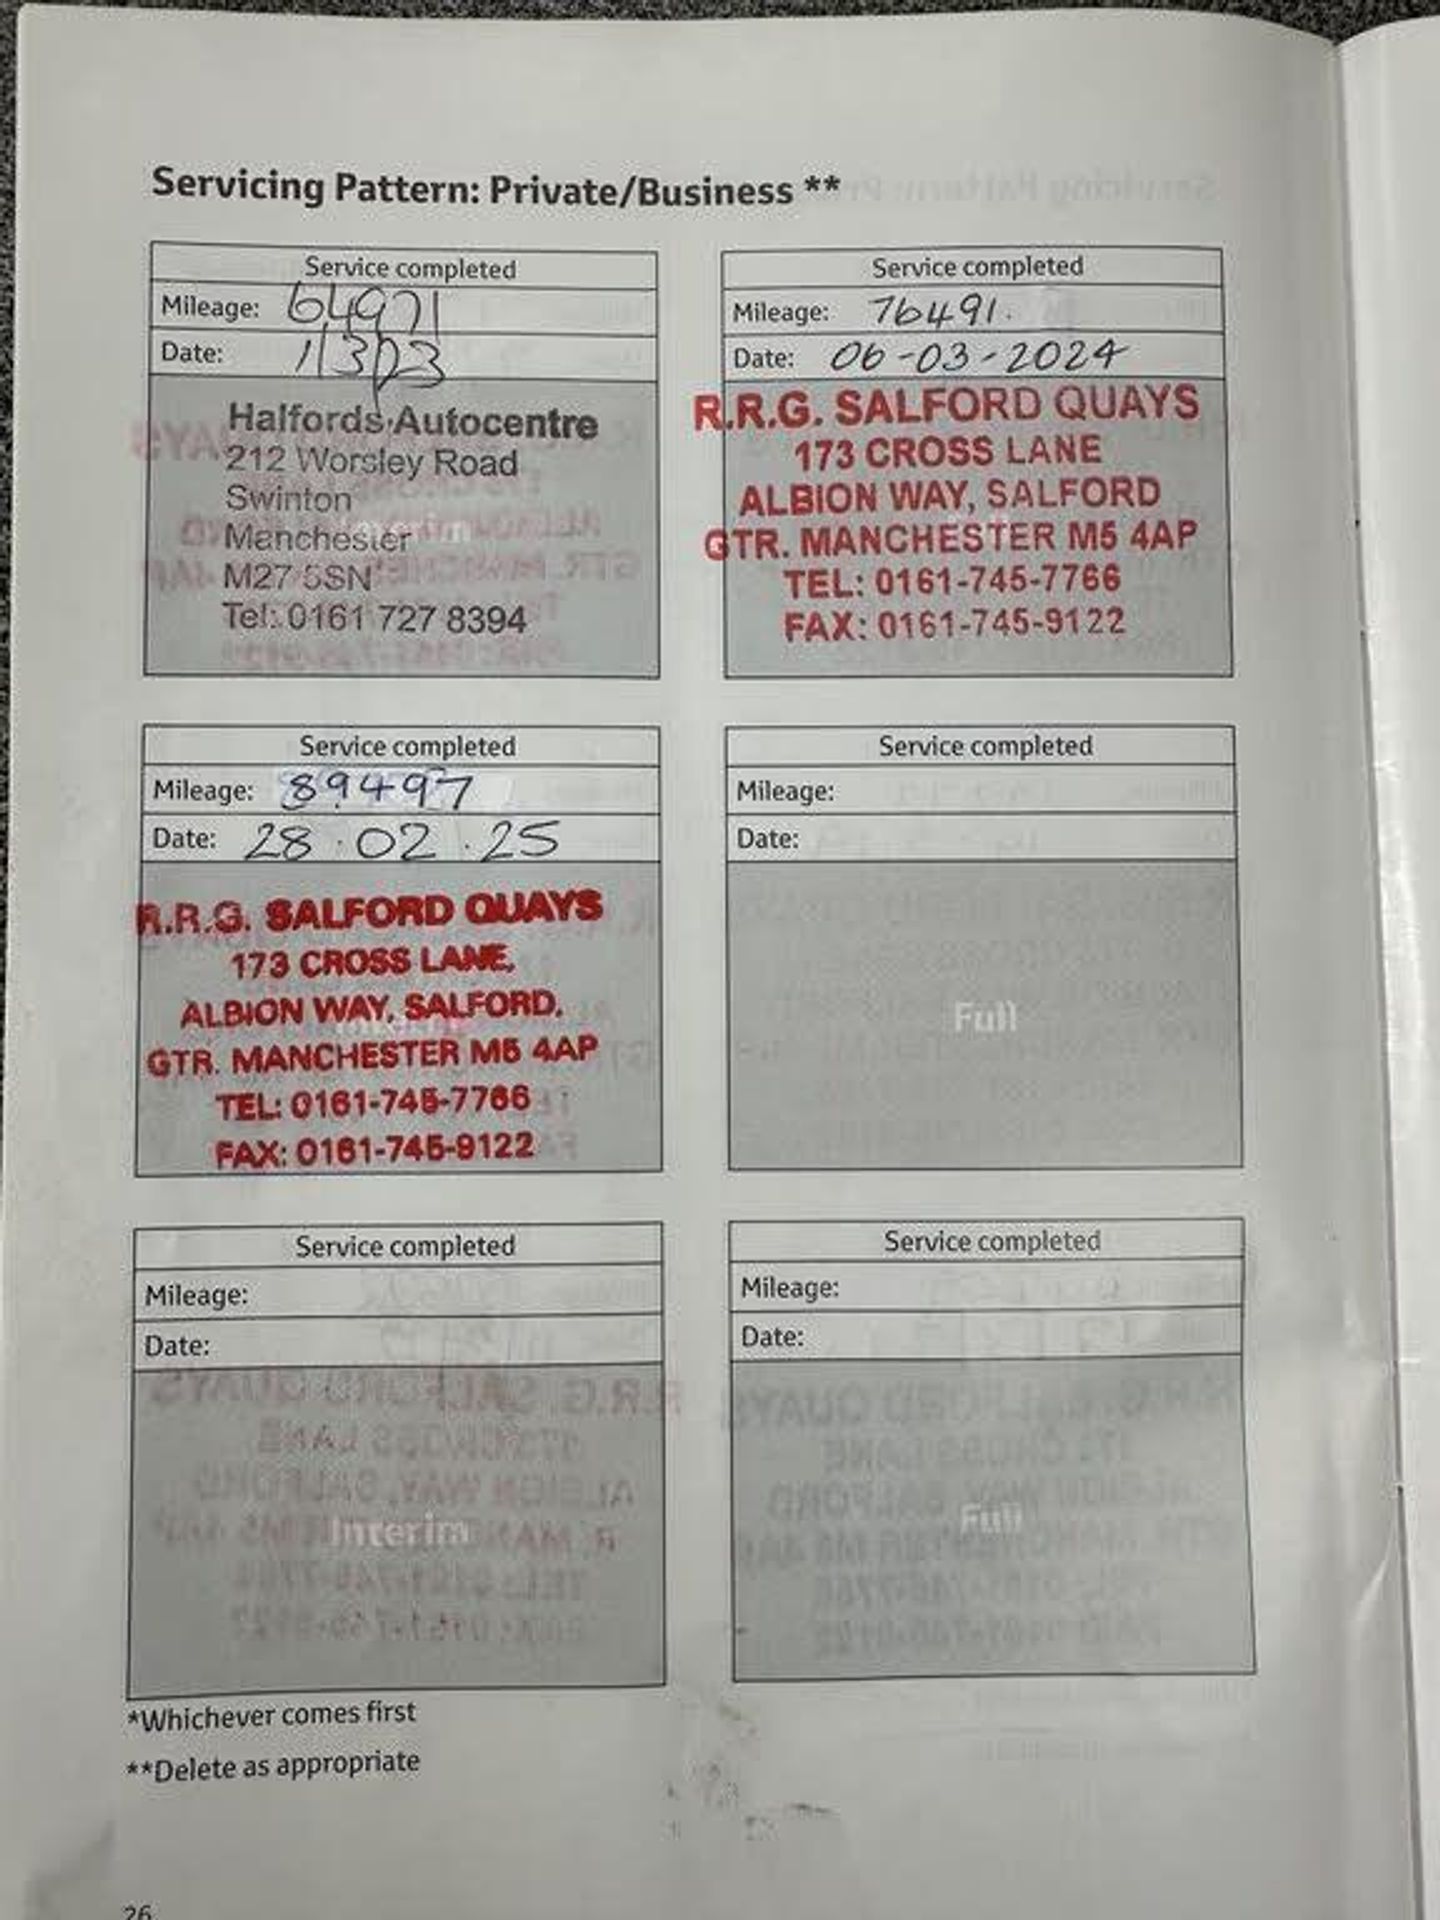 Servicing Pattern: Private/Business **
Service completed
Mileage: 64971
Date: 1/3/23
Halfords Autocentre
212 Worsley Road
Swinton
Manchester
M27 5SN
Tel: 0161 727 8394
Service completed
Mileage: 76491.
Date: 06-03-2024
R.R.G. SALFORD QUAYS
173 CROSS LANE
ALBION WAY, SALFORD
GTR. MANCHESTER M5 4AP
TEL: 0161-745-7766
FAX: 0161-745-9122
Service completed
Mileage: 89497
Date: 28.02.25
R.R.G. SALFORD QUAYS
173 CROSS LANE,
ALBION WAY, SALFORD.
GTR. MANCHESTER M5 4AP
TEL: 0161-745-7766
FAX: 0161-745-9122
Service completed
Mileage:
Date:
Full
Service completed
Mileage:
Date:
Interim
Service completed
Mileage:
Date:
Full
*Whichever comes first
**Delete as appropriate
26